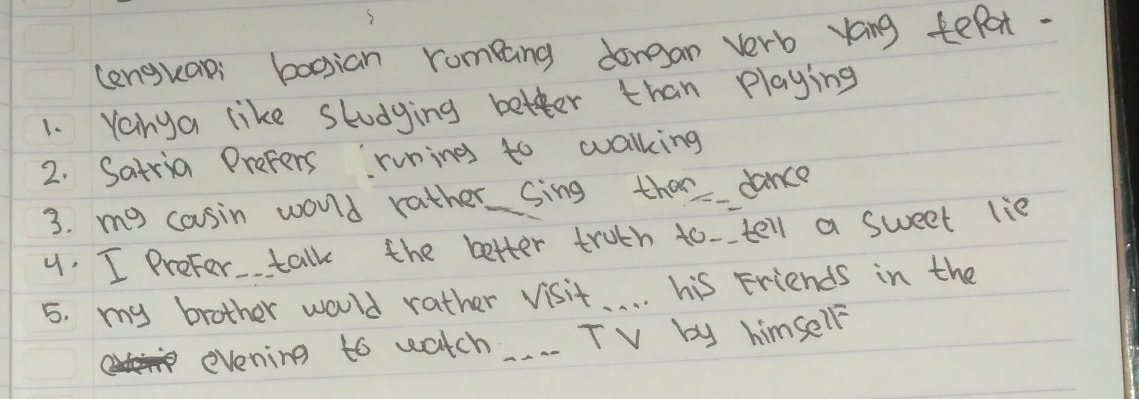 Lengkapi bagian rumpang dengan verb yang tepat -
1. Yahya like studying better than Playing
2. Satria Prefers runing to walking
3. my cousin would rather_ Sing than__ dance
4. I Prefer...talk the better truth to...tell a sweet lie
5. my brother would rather visit.... his Friends in the
evening to watch .... TV by himself